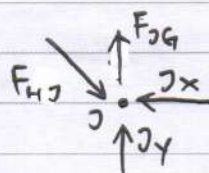 F_JG
F_HJ
J
JX
JY